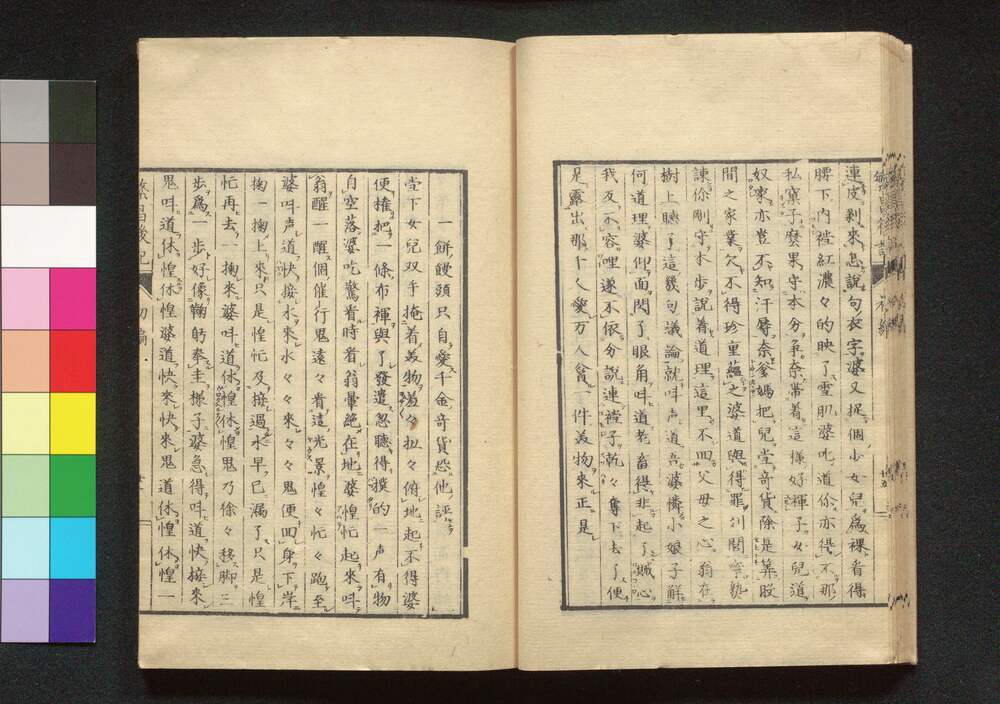 連皮剥來思說句々衣字婆又捉個少女兒爲裸看得
腰下內襠紅濃々的映了雪肌婆叱道你亦得不那
私窠子麼果守本分爭奈帶着這樣好褌子女兒道
奴家亦豈不知汗辱奈爹媽把兒當奇貨除是算股
間之家業欠不得珍重蘊之婆道與得罪
諫你剛守本步說着道理這里不四父母之心翁在
樹上聽了這幾句議論就叫声道吾婆憐小娘子解
何道理婆仰面閃了眼角叫道老畜得非起了賊心
我反不容哩遂不依分說連襠子乾々奪下去了便
是露出那十人愛万人貪一件美物來正是
一餅饅頭只自愛千金奇貨恁他評
當下女兒双手掩着美物羞々扯々俯地起不得婆
便權把一條布褌與了發遣忽聽得撲的一声有物
自空落婆吃驚看時看翁暈絕在地婆惶忙起來叫
翁醒一醒個催行鬼遠々看這光景惶々忙々跑至
婆叫声道快接水來水々々來々々々鬼便回身下岸
掬一掬上來只是惶忙及接過水早已漏了只是惶
忙再去一掬來婆叫道休惶休惶鬼乃徐々移脚三
步爲一步好像鞠躬奉圭樣子婆急得叫道快接來
鬼叫道休惶休惶婆道快來快來鬼道休惶休惶一
繁昌後記
初編